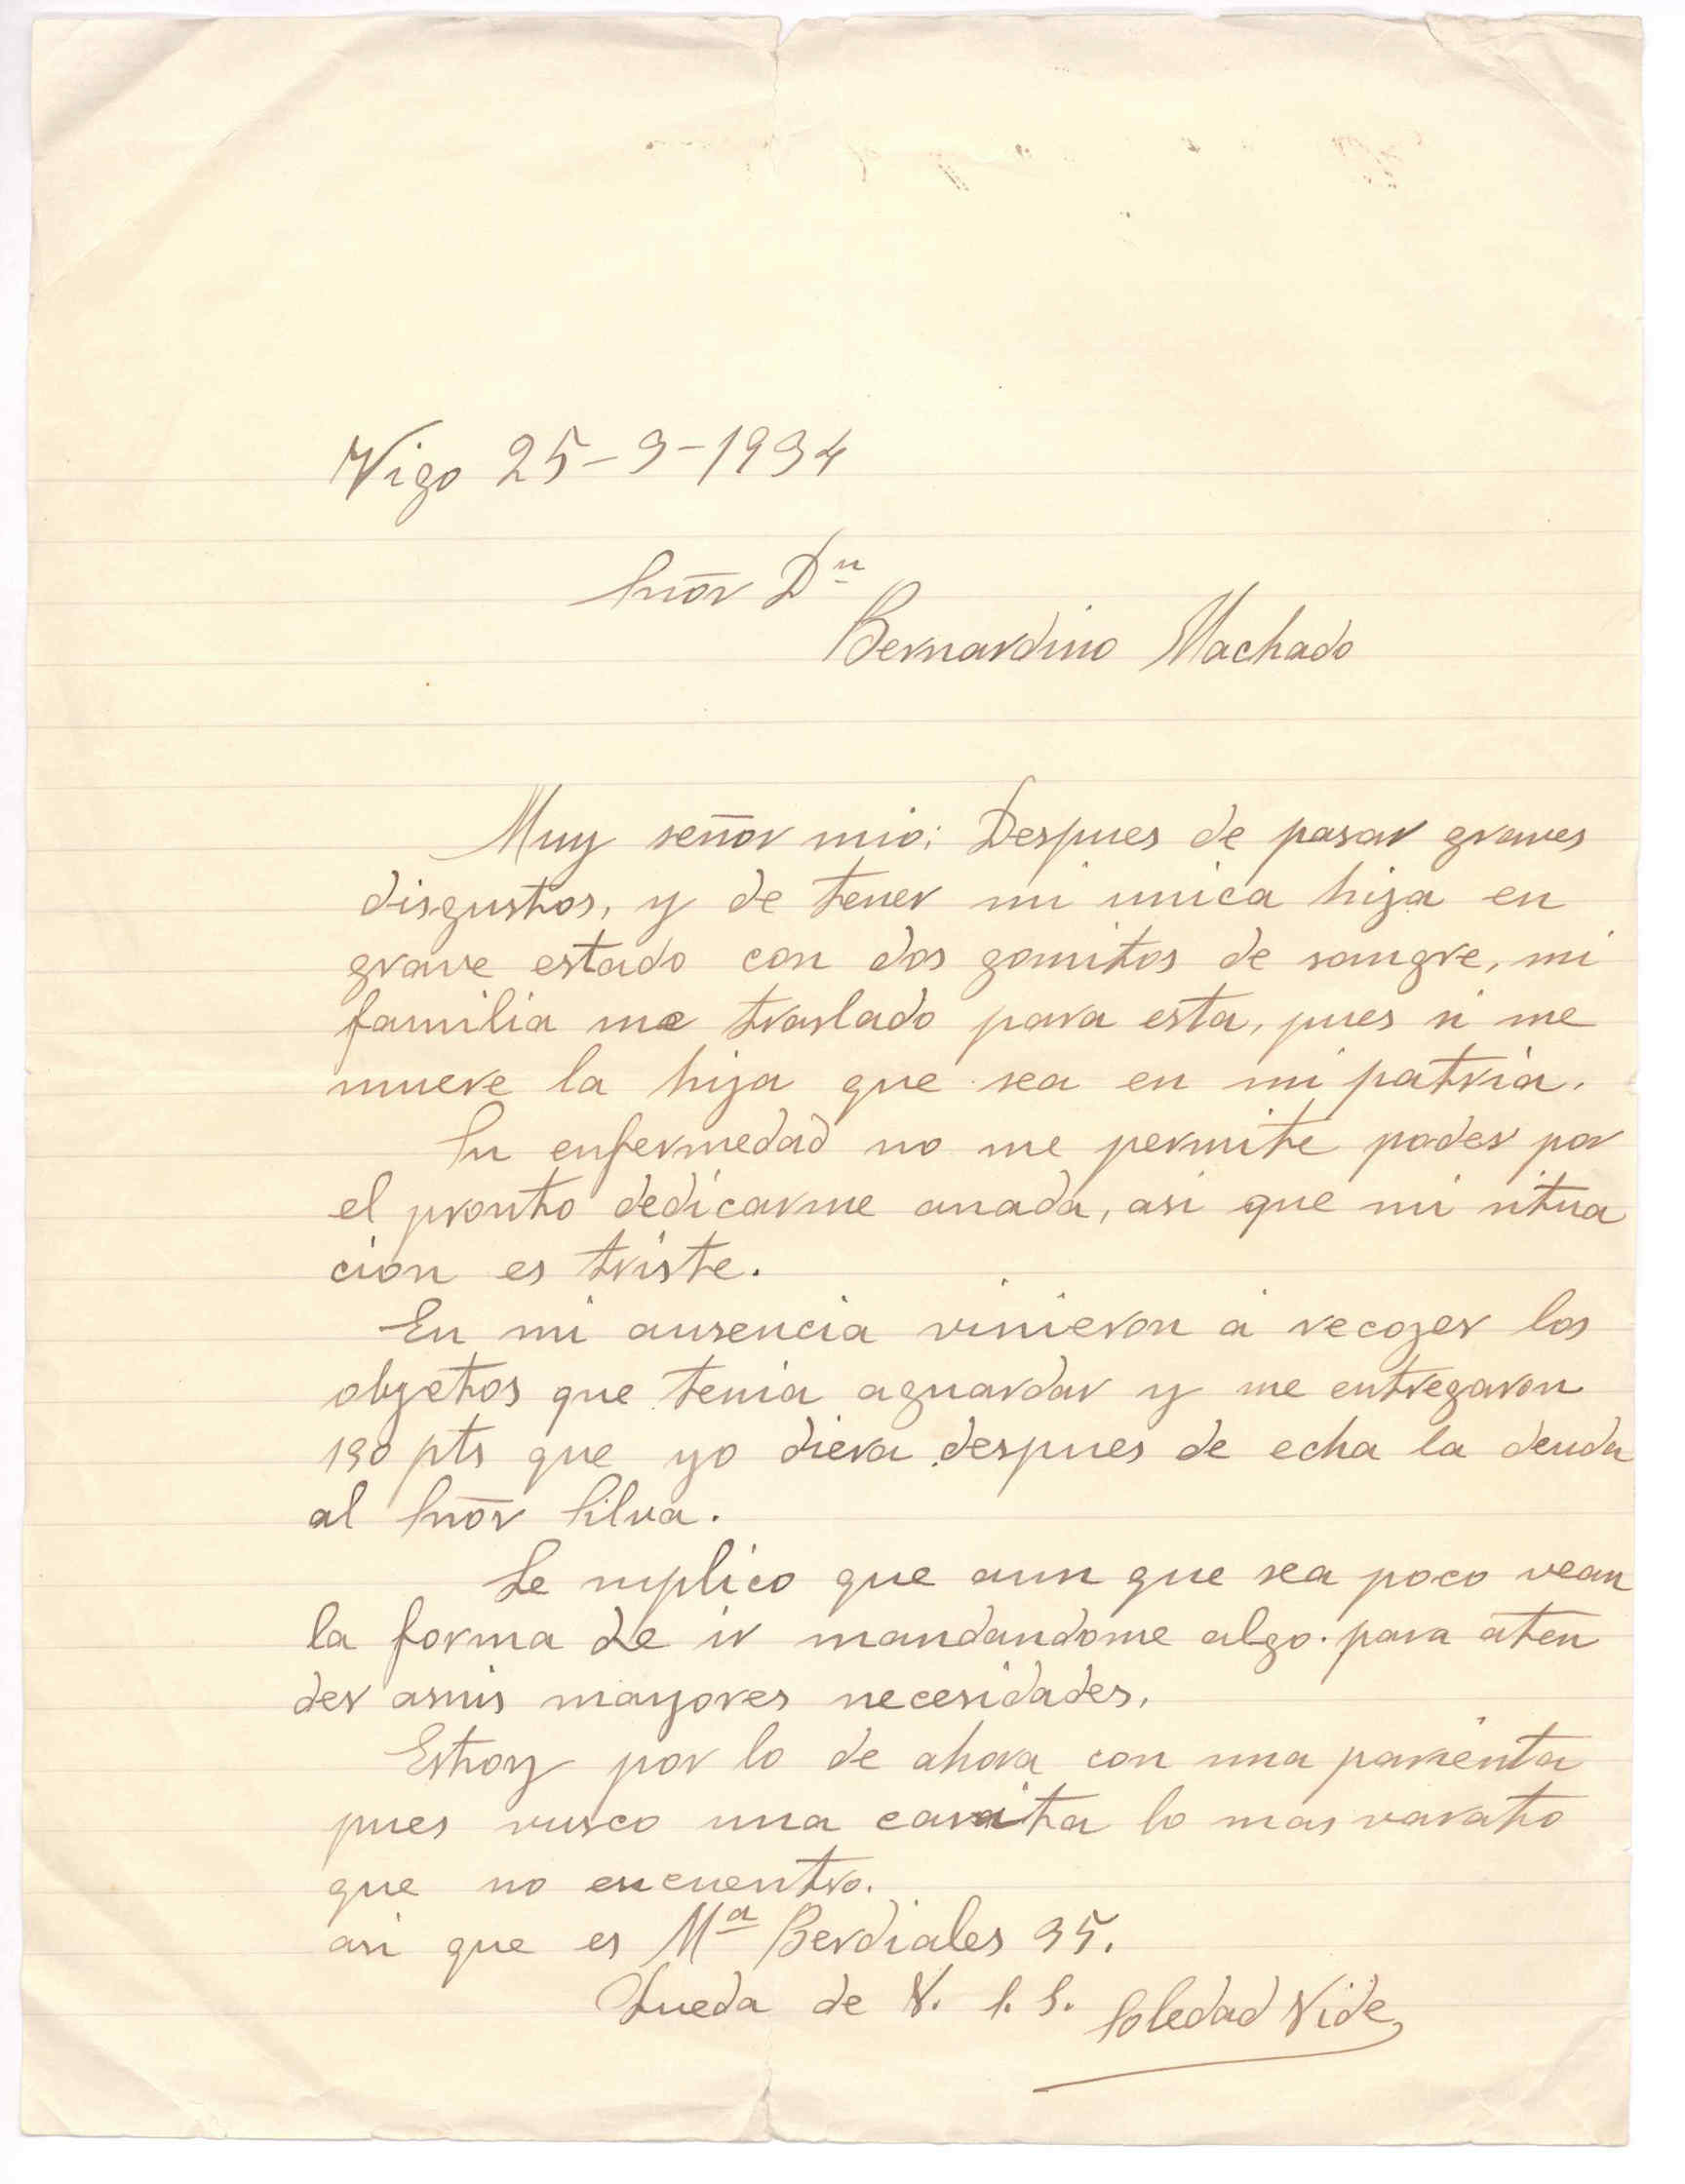 Vigo 25-9-1934
Snõr Dn
Bernardino Machado
Muy señor mio: Despues de pasar graves
disgustos, y de tener mi unica hija en
grave estado con dos gomitos de sangre, mi
familia me traslado para esta, pues si me
muere la hija que sea en mi patria.
Su enfermedad no me permite poder por
el pronto dedicarme anada, asi que mi situa
cion es triste.
En mi ausencia vinieron a recoger los
objetos que tenia aguardar y me entregaron
190 pts que yo diera despues de echa la deuda
al Snõr Silva.
Le suplico que aun que sea poco vean
la forma de ir mandandome algo. para aten
der amis mayores necesidades.
Estoy por lo de ahora con una parienta
pues vusco una casita lo mas varato
que no encuentro.
asi que es Ma Berdiales 35.
Queda de V. S. S. Soledad Vide